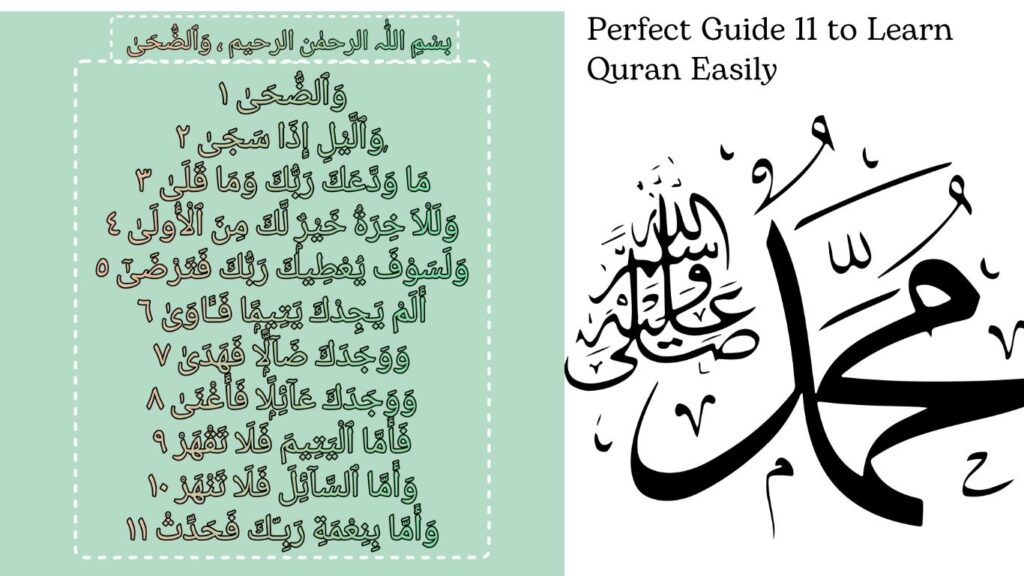 بسْمِ اللّٰہ الرحمٰن الرحیم ، وَٱلضُّحَىٰ
وَٱلضُّحَىٰ ١
وَٱلَّيْلِ إِذَا سَجَىٰ ٢
مَا وَدَّعَكَ رَبُّكَ وَمَا قَلَىٰ ٣
وَلَلْـَٔاخِرَةُ خَيْرٌۭ لَّكَ مِنَ ٱلْأُولَىٰ ٤
وَلَسَوْفَ يُعْطِيكَ رَبُّكَ فَتَرْضَىٰٓ ٥
أَلَمْ يَجِدْكَ يَتِيمًۭا فَـَٔاوَىٰ ٦
وَوَجَدَكَ ضَآلًّۭا فَهَدَىٰ ٧
وَوَجَدَكَ عَآئِلًۭا فَأَغْنَىٰ ٨
فَأَمَّا ٱلْيَتِيمَ فَلَا تَقْهَرْ ٩
وَأَمَّا ٱلسَّآئِلَ فَلَا تَنْهَرْ ١٠
وَأَمَّا بِنِعْمَةِ رَبِّكَ فَحَدِّثْ ١١
Perfect Guide 11 to Learn
Quran Easily
محمد
صلى الله عليه وسلم